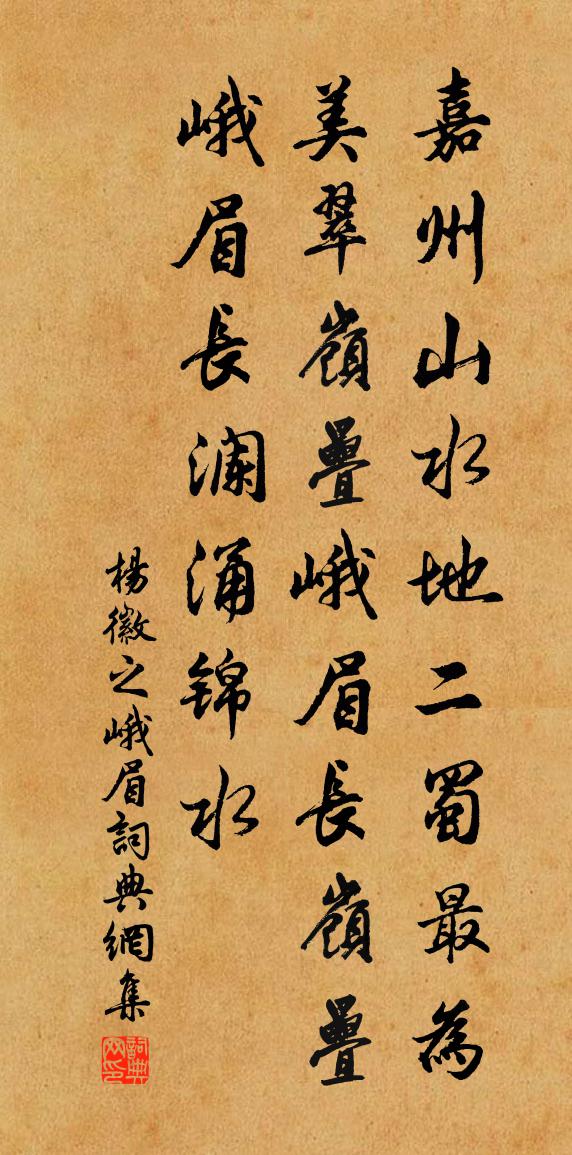 嘉州山水地二蜀最為
美翠嶺疊峨眉長嶺疊
峨眉長澜涌锦水
楊徽之峨眉詞典網集
詞典网印